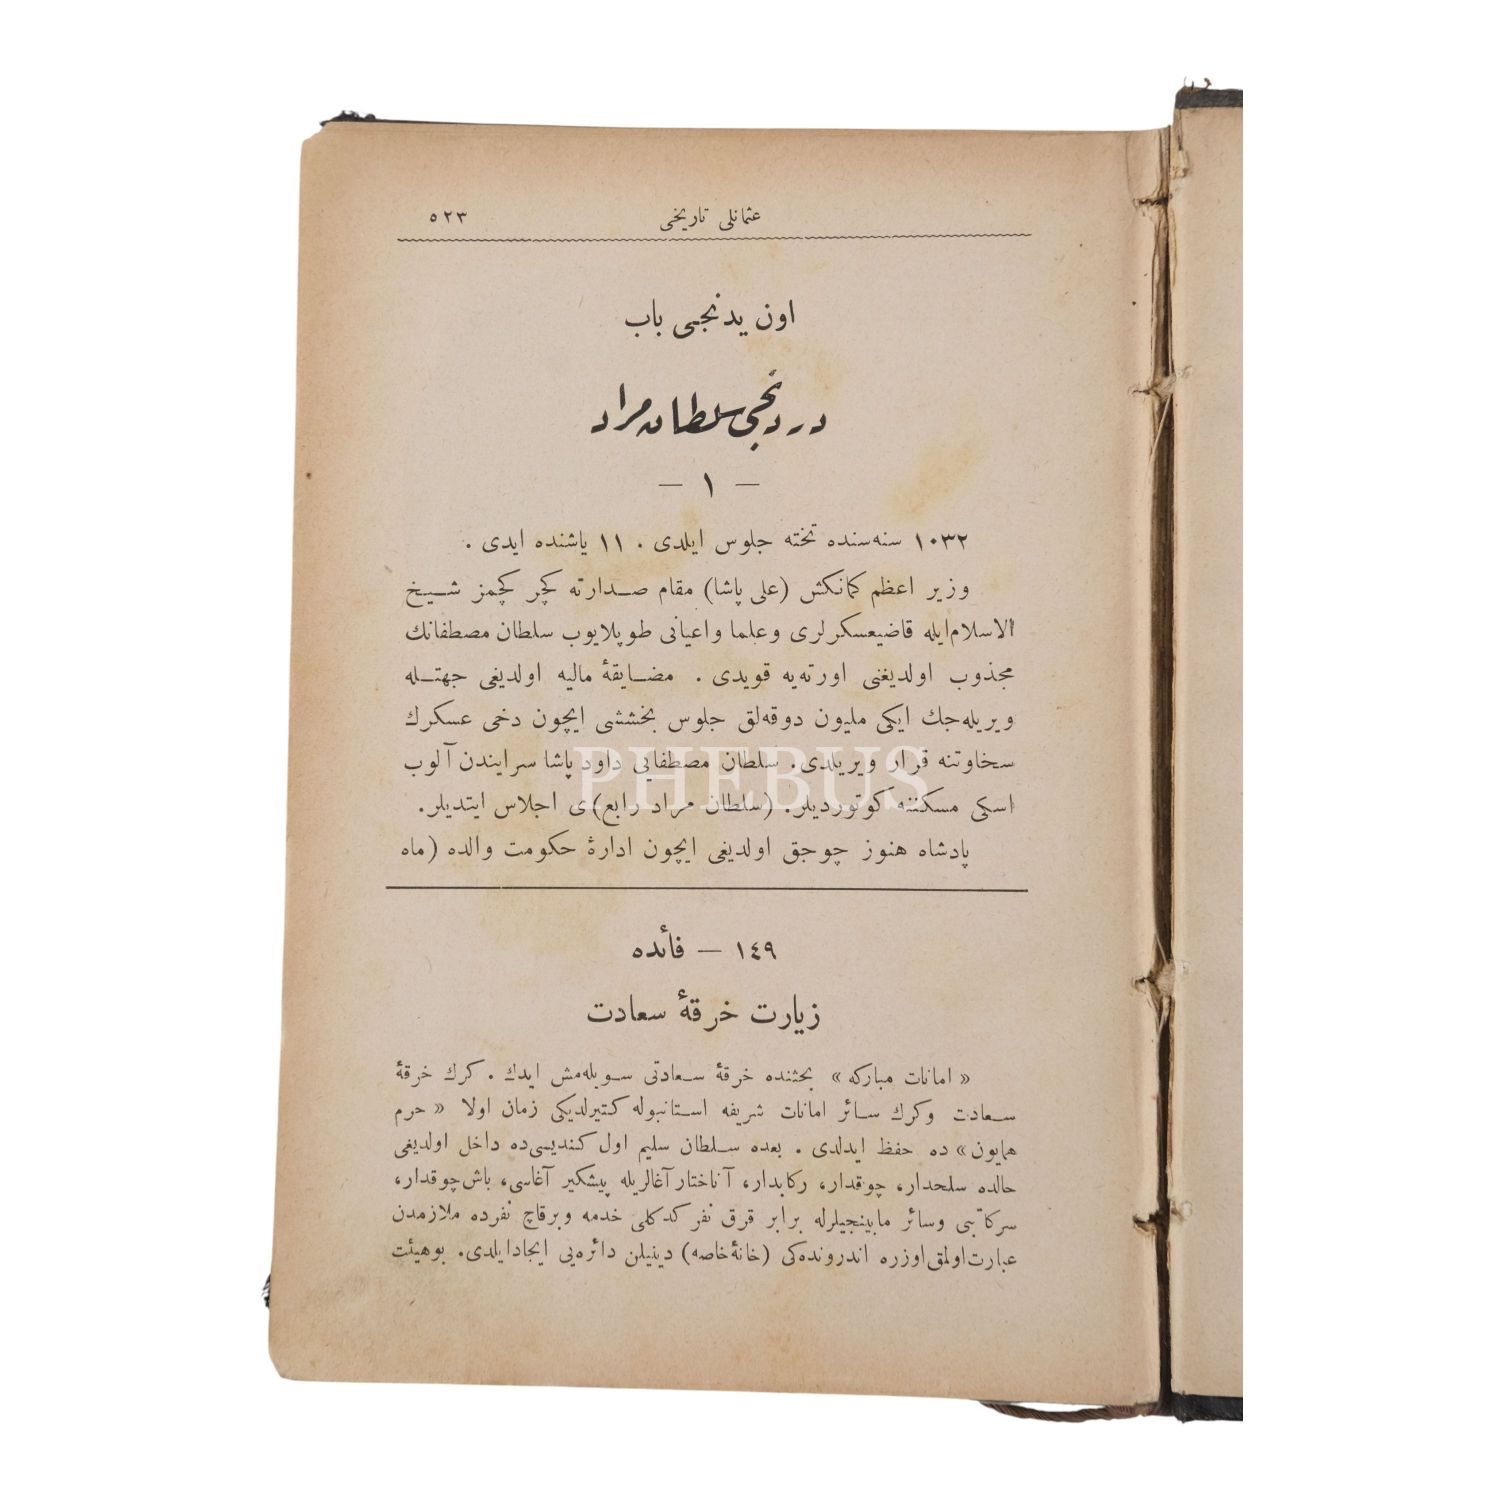 عثمانلی تاریخی ٥٢٣
اون یدنجی باب
دردنجی سلطان مراد
— ١ —
١٠٣٢ سنه‌سنده تخته جلوس ایلدی . ١١ یاشنده ایدی .
وزیر اعظم کمانکش (علی پاشا) مقام صدارته کچر کچمز شیخ
الاسلام ایله قاضیعسکرلری وعلما واعیانی طوپلایوب سلطان مصطفانك
مجذوب اولدیغنی اورته‌یه قویدی . مضایقهٔ مالیه اولدیغی جهتله
ویریله‌جك ایکی ملیون دوقه‌لق جلوس بخششی ایچون دخی عسکرك
سخاوتنه قرار ویریلدی. سلطان مصطفایی داود پاشا سرایندن آلوب
اسکی مسکننه کوتوردیلر. (سلطان مراد رابع)ی اجلاس ایتدیلر.
پادشاه هنوز چوجق اولدیغی ایچون ادارهٔ حکومت والده (ماه
PHEBUS
١٤٩ — فائده
زیارت خرقهٔ سعادت
« امانات مبارکه » بحثنده خرقهٔ سعادتی سویله‌مش ایدك . كرك خرقهٔ
سعادت وكرك سائر امانات شریفه استانبوله کتیرلدیکی زمان اولا « حرم
همایون» ده حفظ ایدلدی . بعده سلطان سلیم اول کندیسی‌ده داخل اولدیغی
حالده سلحدار، چوقدار، رکابدار، آناختار آغالریله پیشکیر آغاسی، باش چوقدار،
سرکاتبی وسائر مابینجیلرله برابر قرق نفر کدکلی خدمه وبرقاچ نفرده ملازمدن
عبارت اولمق اوزره اندرونده‌کی (خانهٔ خاصه) دینیلن دائره‌یی ایجاد ایلدی. بوهیئت